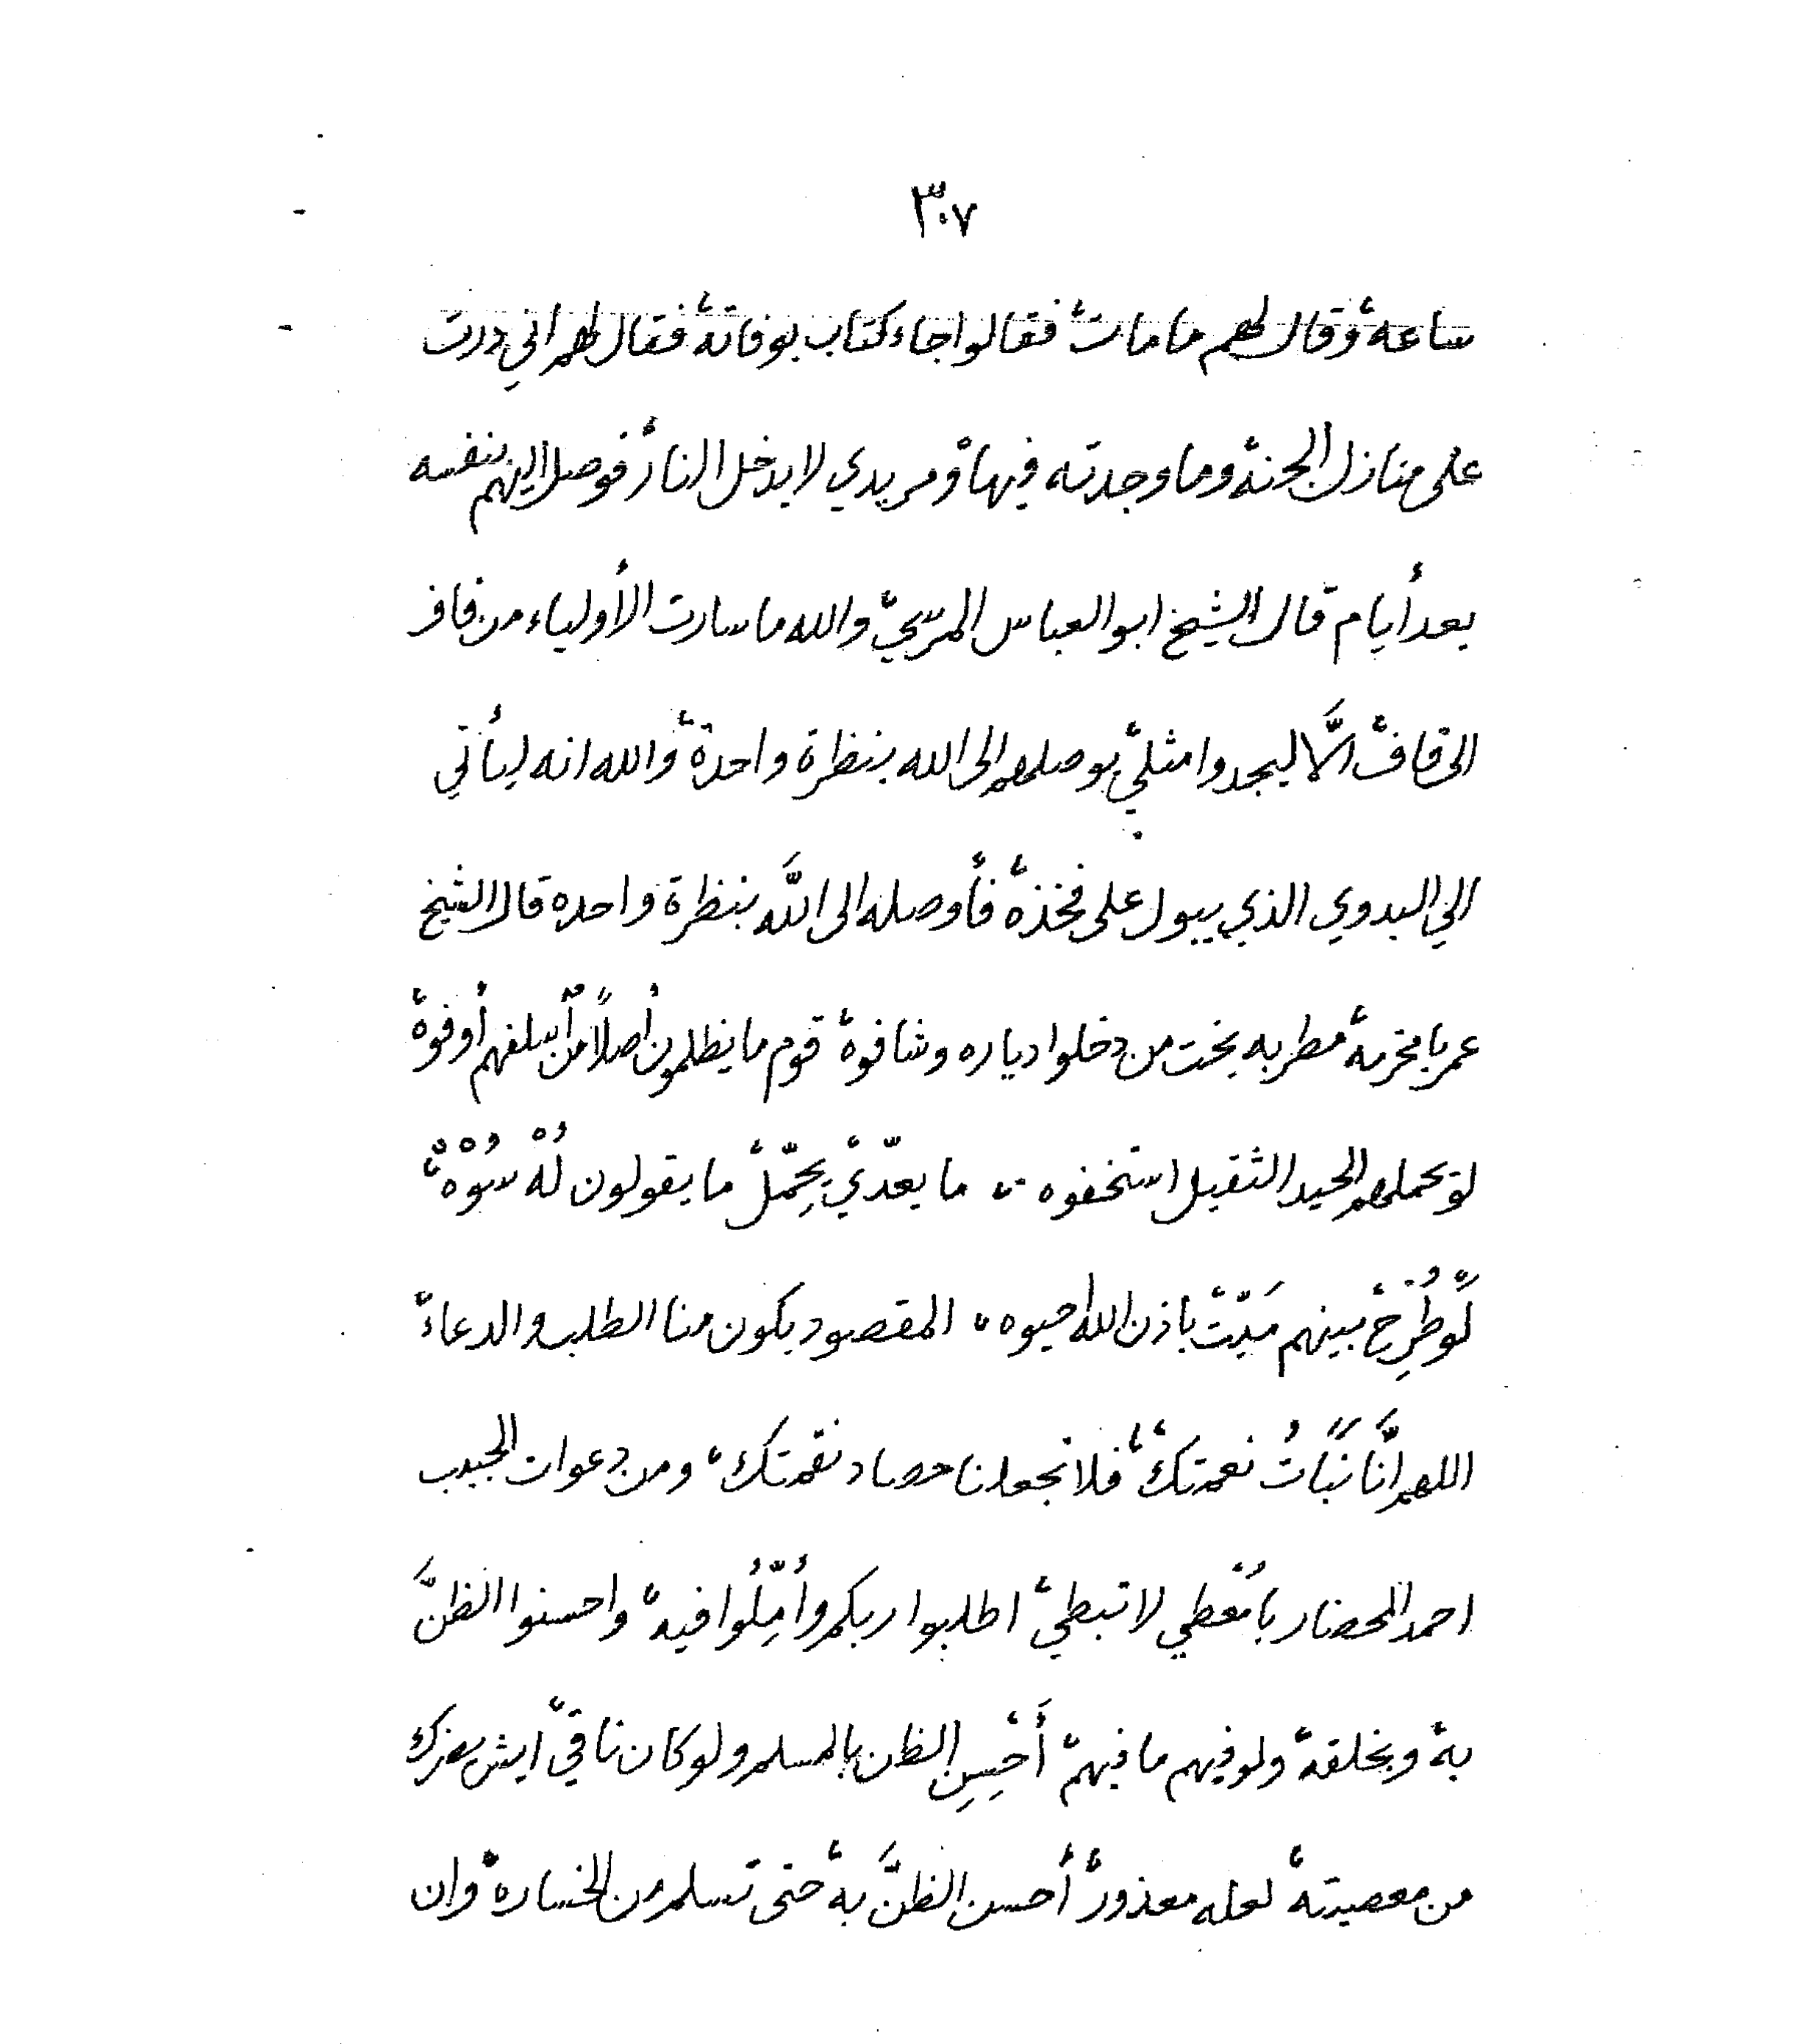 ٣٠٧
ساعة، وقال لهم ما مات، فقالوا جاء كتاب بوفاته، فقال لهم اني درت
على منازل الجنة وما وجدته فيها، ومريدي لا يدخل النار، فوصل اليهم بنفسه
بعد أيام قال الشيخ ابو العباس المرسّي، والله ما سارت الأولياء من قاف
الى قاف، الَّا ليجدوا مثلي، يوصلهم الى الله بنظرة واحدة، والله انه ليأتي
الي البدوي الذي يبول على فخذه، فأوصله الى اللَّه بنظرة واحده قال الشيخ
عمر بامخرمة، مطر به بخت من دخلوا دياره وشافوه، قوم ما يظلمون أصلاً من أسلفهم أوفوه،
لو تحملهم الحيد الثقيل استخفوه ،، ما يعدّيْ يِحِمّلْ ما يقولون لُهْ سُوْهْ،
لَوْ طُرِحْ بينهم مَيّتْ باذن الله احيوه ،، المقصود يكون منا الطلب والدعاء،
اللهم انَّا نَبَاتُ نعمتك، فلا تجعلنا حصاد نقمتك، ومن دعوات الحبيب
احمد المحضار يا مُعْطي لا تبطي، اطلبوا ربكم وأمِّلُوا فيه، واحسنوا الظنَّ
به، وبخلقه، ولو فيهم ما فيهم، أَحْسِنِ الظن بالمسلم ولو كان ناقي، ايش يضرك
من معصيته، لعله معذور، أحسن الظنَّ به، حتى تسلم من الخساره، وان